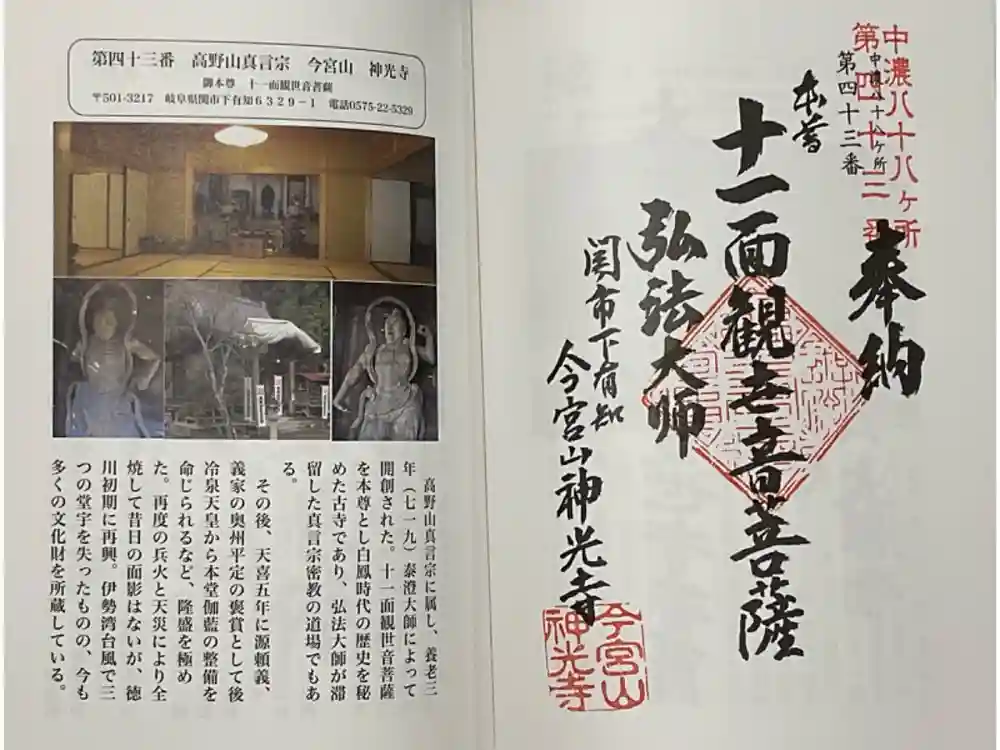 第四十三番　高野山真言宗　今宮山　神光寺
御本尊　十一面観世音菩薩
〒501-3217　岐阜県関市下有知６３２９－１　電話0575-22-5329
高野山真言宗に属し、養老三
年（七一九）泰澄大師によって
開創された。十一面観世音菩薩
を本尊とし白鳳時代の歴史を秘
めた古寺であり、弘法大師が滞
留した真言宗密教の道場でもあ
る。
その後、天喜五年に源頼義、
義家の奥州平定の褒賞として後
冷泉天皇から本堂伽藍の整備を
命じられるなど、隆盛を極め
た。再度の兵火と天災により全
焼して昔日の面影はないが、徳
川初期に再興。伊勢湾台風で三
つの堂宇を失ったものの、今も
多くの文化財を所蔵している。
中濃八十八ヶ所
第四十三
中濃八十八ヶ所
第四十三番
奉納
本尊
十一面観世音菩薩
弘法大师
関市下有知
今宮山神光寺
今宮山
神光寺